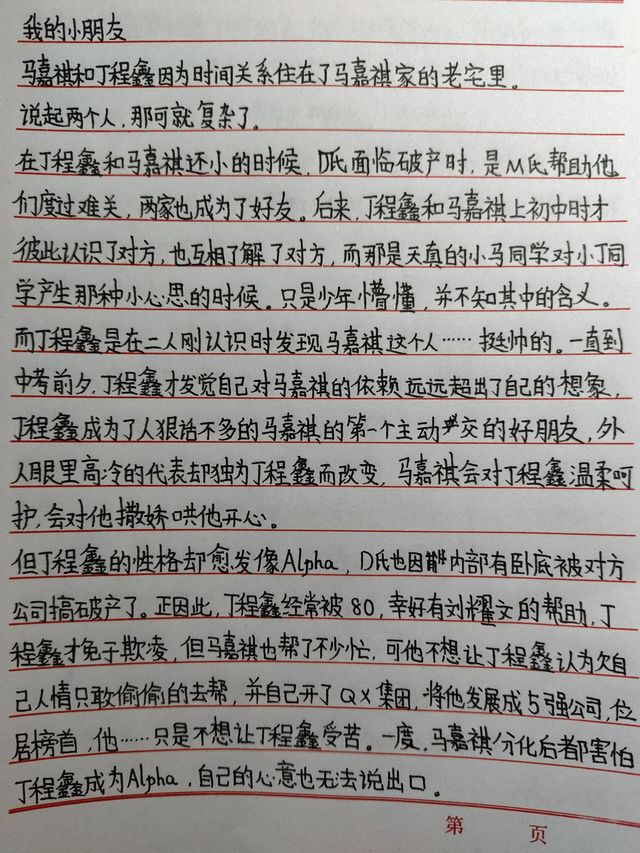 我的小朋友
马嘉祺和丁程鑫因为时间关系住在了马嘉祺家的老宅里。
说起两个人,那可就复杂了。
在丁程鑫和马嘉祺还小的时候,D氏面临破产时,是M氏帮助他
们度过难关,两家也成为了好友。后来,丁程鑫和马嘉祺上初中时才
彼此认识了对方,也互相了解了对方,而那是天真的小马同学对小丁同
学产生那种小心思的时候。只是少年懵懂,并不知其中的含义。
而丁程鑫是在二人刚认识时发现马嘉祺这个人……挺帅的。一直到
中考前夕,丁程鑫才发觉自己对马嘉祺的依赖远远超出了自己的想象,
丁程鑫成为了人狠话不多的马嘉祺的第一个主动交的好朋友,外
人眼里高冷的代表却独为丁程鑫而改变,马嘉祺会对丁程鑫温柔呵
护,会对他撒娇哄他开心。
但丁程鑫的性格却愈发像Alpha,D氏也因内部有卧底被对方
公司搞破产了。正因此,丁程鑫经常被80,幸好有刘耀文的帮助,丁
程鑫才免于欺凌,但马嘉祺也帮了不少忙,可他不想让丁程鑫认为欠自
己人情只敢偷偷的去帮,并自己开了QX集团,将他发展成5强公司,位
居榜首,他……只是不想让丁程鑫受苦。一度,马嘉祺分化后都害怕
丁程鑫成为Alpha,自己的心意也无法说出口。
第 页